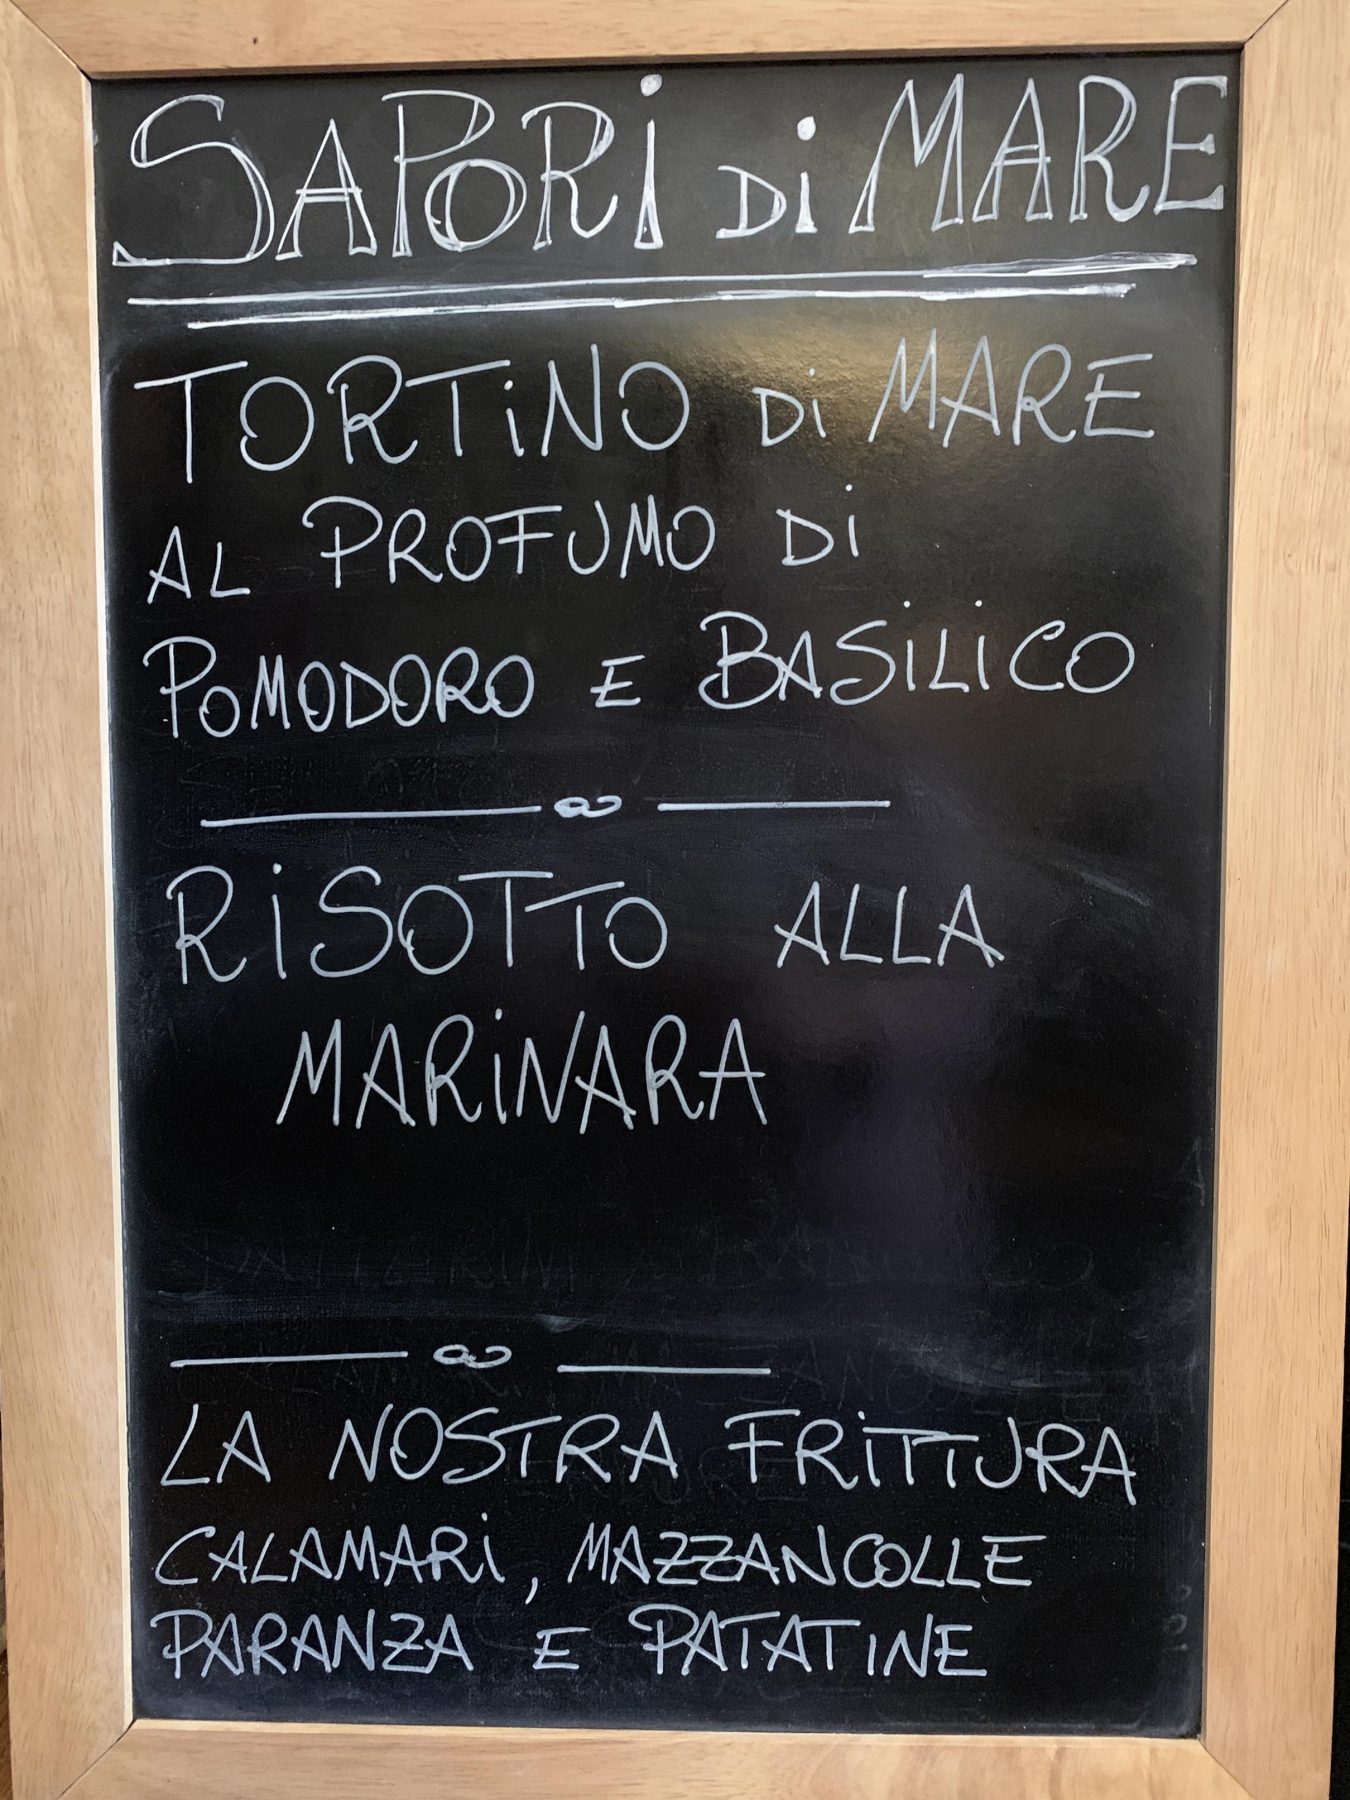 SAPORi Di MARE
TORTiNO Di MARE
AL PROFUMO Di
POMODORO E BASiLiCO
RiSOTTO ALLA
MARiNARA
LA NOSTRA FRiTTURA
CALAMARi, MAZZANCOLLE
PARANZA E PATATiNE